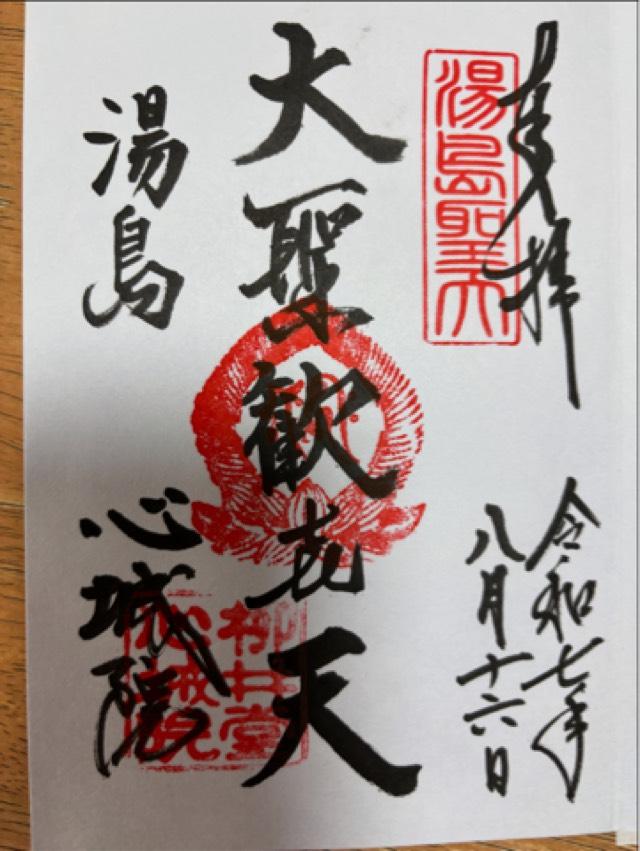 奉拝
湯島聖天
令和七年
八月十六日
大聖歓喜天
湯島
心城院
柳井堂
心城院